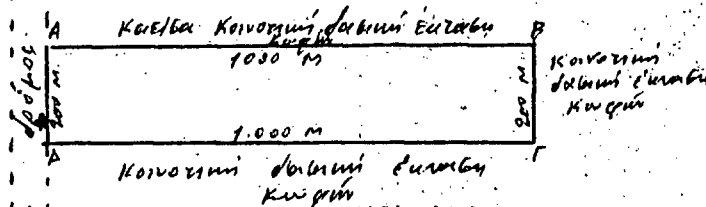 Α Κοινοτική δασική έκταση Β
Κωφών
1000 Μ
δρόμος
200 Μ
200 Μ
Κοινοτική
δασική έκταση
Κωφών
1.000 Μ
Δ Γ
Κοινοτική δασική έκταση
Κωφών